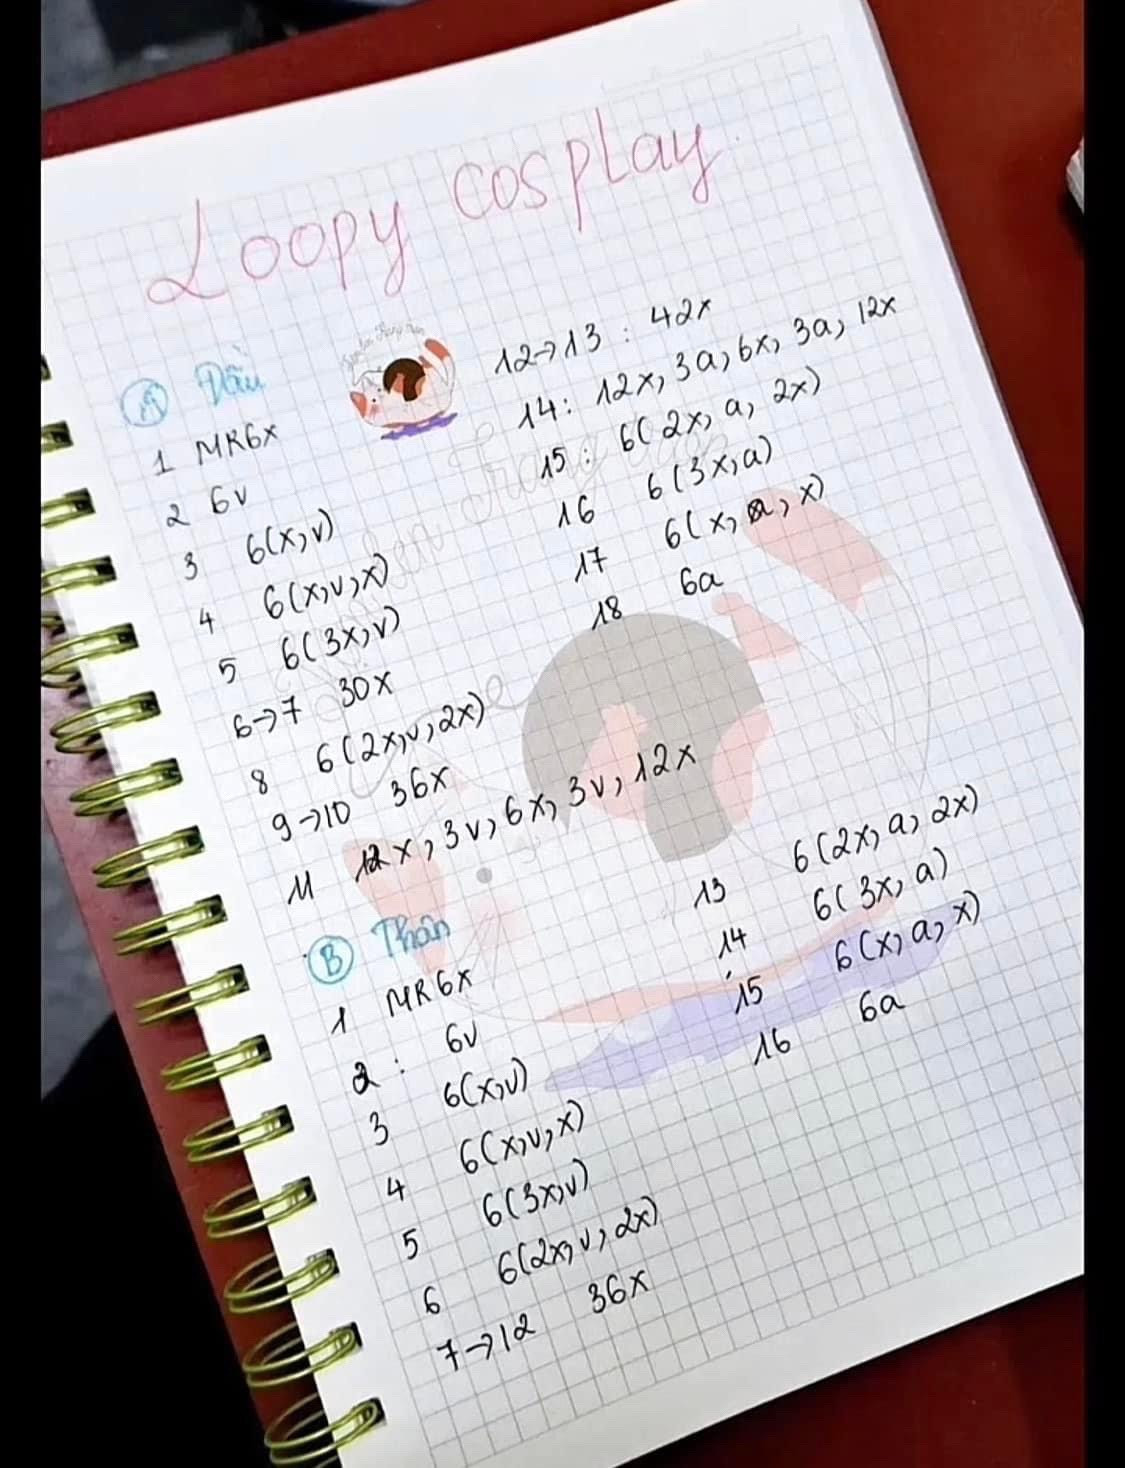 Loopy cosplay
A Đầu
1 MR6x
2 6v
3 6(x,v)
4 6(x,v,x)
5 6(3x,v)
6→7 30x
8 6(2x,v,2x)
9→10 36x
11 12x, 3v, 6x, 3v, 12x
12→13 : 42x
14: 12x, 3a, 6x, 3a, 12x
15: 6(2x, a, 2x)
16 6(3x,a)
17 6(x, a, x)
18 6a
B Thân
1 MR6x
2: 6v
3 6(x,v)
4 6(x,v,x)
5 6(3x,v)
6 6(2x,v,2x)
7→12 36x
13 6(2x, a, 2x)
14 6(3x, a)
15 6(x, a, x)
16 6a